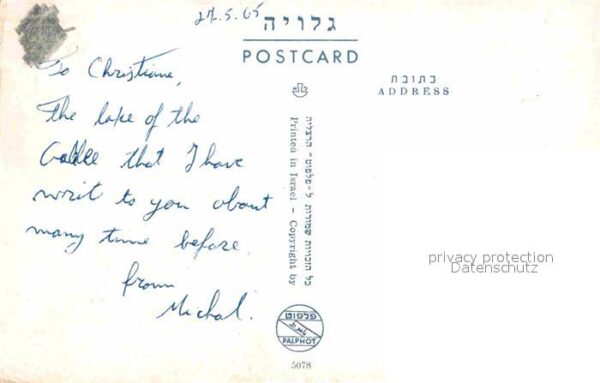 27.5.65
גלויה
POSTCARD
כתובת
ADDRESS
To Christiane,
The lake of the
Galilee that I have
writ to you about
many time before.
from
Michal.
כל הזכויות שמורות ל־"פלפוט" הרצליה
Printed in Israel - Copyright by
פלפוט
PALPHOT
5078
privacy protection
Datenschutz